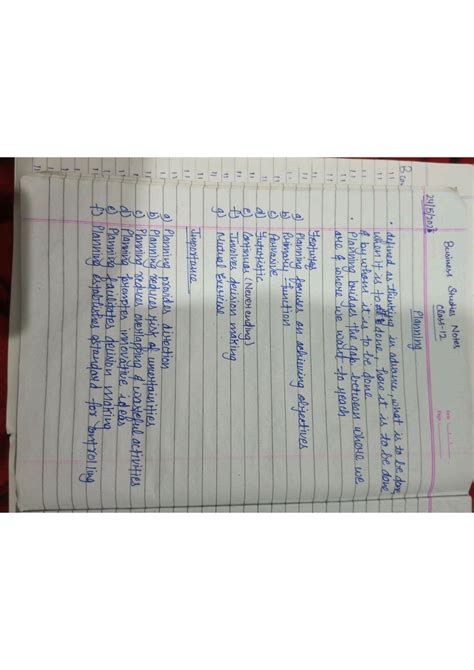 24/5/2023
Business Studies Notes
Class-12
Planning
• defined as thinking in advance, what is to be done,
when it is to be done, how it is to be done
& by whom it is to be done
• Planning bridges the gap between where we
are & where we want to reach
Features
a) Planning focuses on achieving objectives
b) Primary function
c) Pervasive
d) Futuristic
e) Continues (Never ending)
f) Involves decision making
g) Mental Exercise
Importance
a) Planning provides direction
b) Planning reduces risk of uncertainities
c) Planning reduces overlapping & wasteful activities
d) Planning promotes innovative ideas
e) Planning facilitates decision making
f) Planning establishes standard for controlling